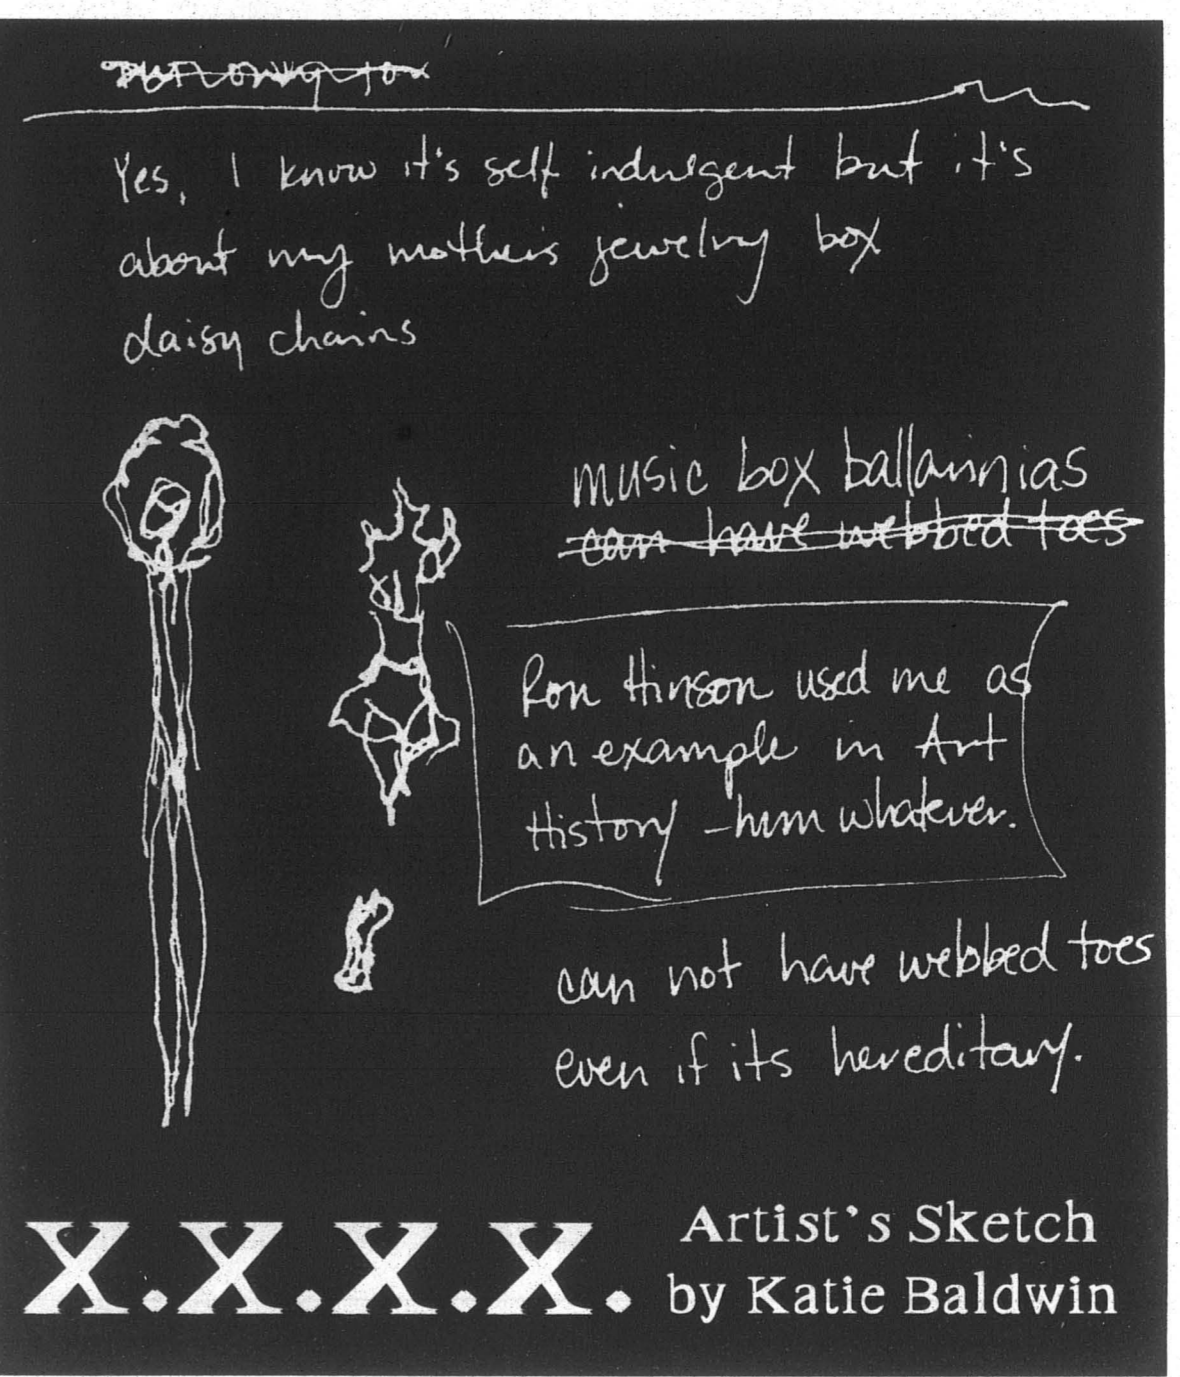 Yes, I know it's self indulgent but it's
about my mother's jewelry box
daisy chains
music box ballarinnias
can have webbed toes
Ron Hinson used me as
an example in Art
History - hum whatever.
can not have webbed toes
even if its hereditary.
X.X.X.X.
Artist's Sketch
by Katie Baldwin